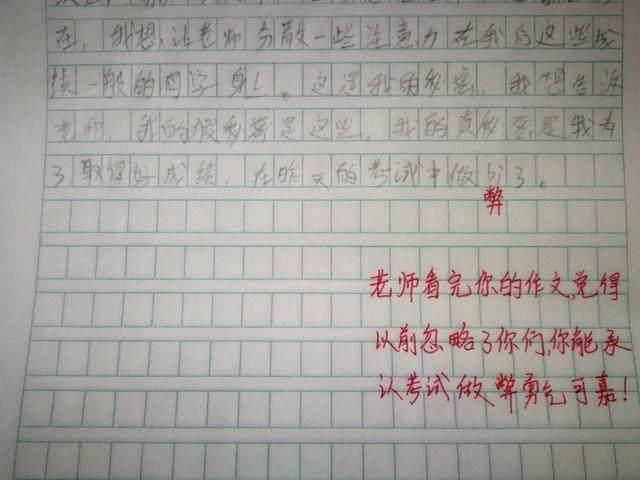 在,我想,让老师分散一些注意力在我们这些成
绩一般的同学身上。这是我的秘密,我想告诉
老师,我的假秘密是这些,我的真秘密是我为
了取得好成绩,在昨天的考试中做bì了。
弊
老师看完你的作文,觉得
以前忽略了你们,你能承
认考试做弊勇气可嘉!